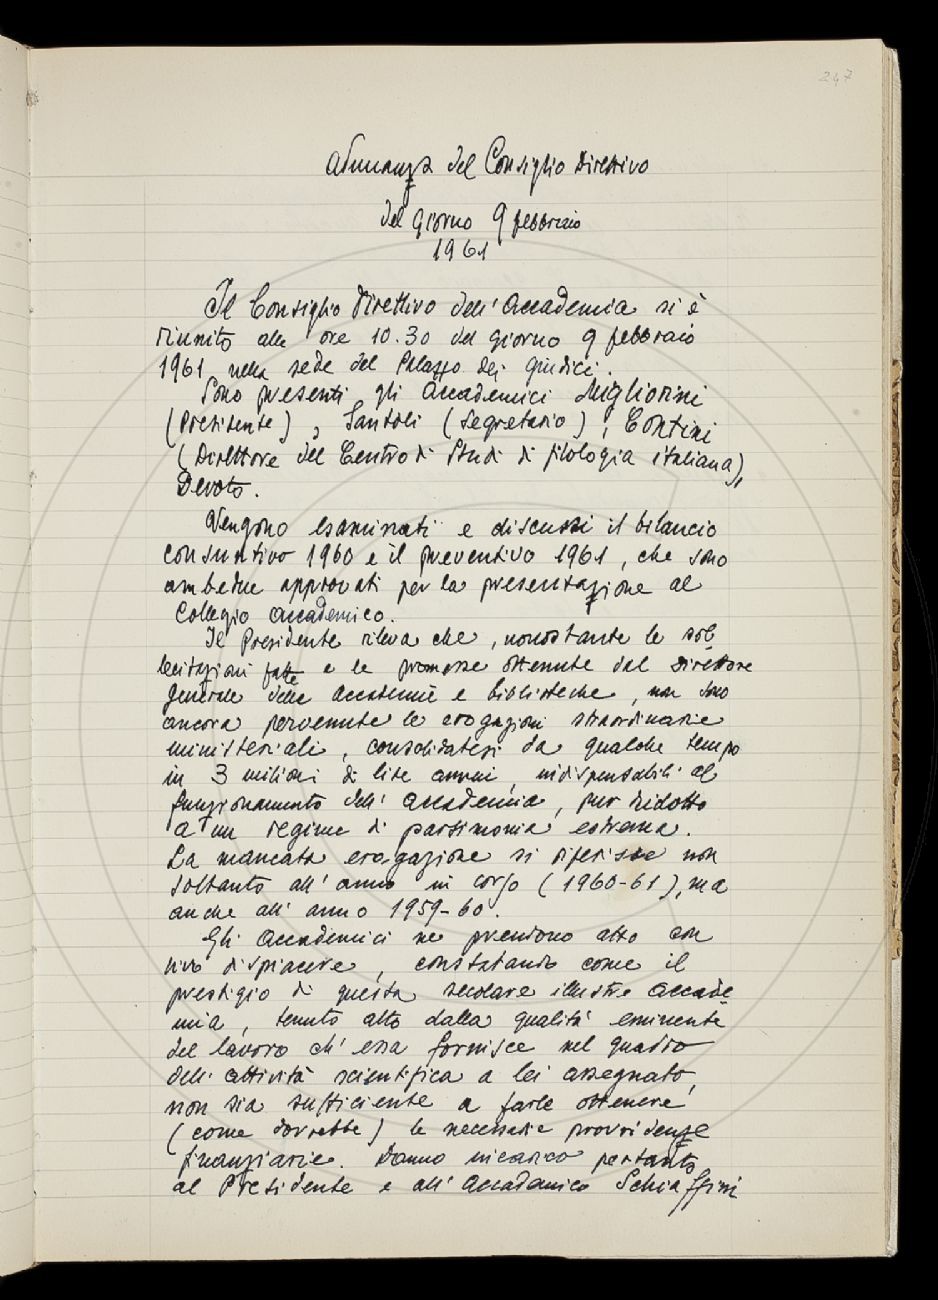 247
Adunanza del Consiglio Direttivo
del giorno 9 febbraio
1961
Il Consiglio Direttivo dell'Accademia si è
riunito alle ore 10.30 del giorno 9 febbraio
1961 nella sede del Palazzo dei Giudici.
Sono presenti gli Accademici Migliorini
(Presidente), Santoli (Segretario), Contini
(Direttore del Centro di Studi di filologia italiana),
Devoto.
Vengono esaminati e discussi il bilancio
consuntivo 1960 e il preventivo 1961, che sono
ambedue approvati per la presentazione al
Collegio Accademico.
Il Presidente rileva che, nonostante le sol
lecitazioni fatte e le promesse ottenute dal Direttore
generale delle Accademie e biblioteche, non sono
ancora pervenute le erogazioni straordinarie
ministeriali, consolidatesi da qualche tempo
in 3 milioni di lire annui, indispensabili al
funzionamento dell'Accademia, pur ridotto
a un regime di parsimonia estrema.
La mancata erogazione si riferisce non
soltanto all'anno in corso (1960-61), ma
anche all'anno 1959-60.
Gli Accademici ne prendono atto con
vivo dispiacere, constatando come il
prestigio di questa secolare illustre Accade
mia, tenuto alto dalla qualità eminente
del lavoro ch'essa fornisce nel quadro
dell'attività scientifica a lei assegnato,
non sia sufficiente a farle ottenere
(come dovrebbe) le necessarie provvidenze
finanziarie. Danno incarico pertanto
al Presidente e all'Accademico Schiaffini